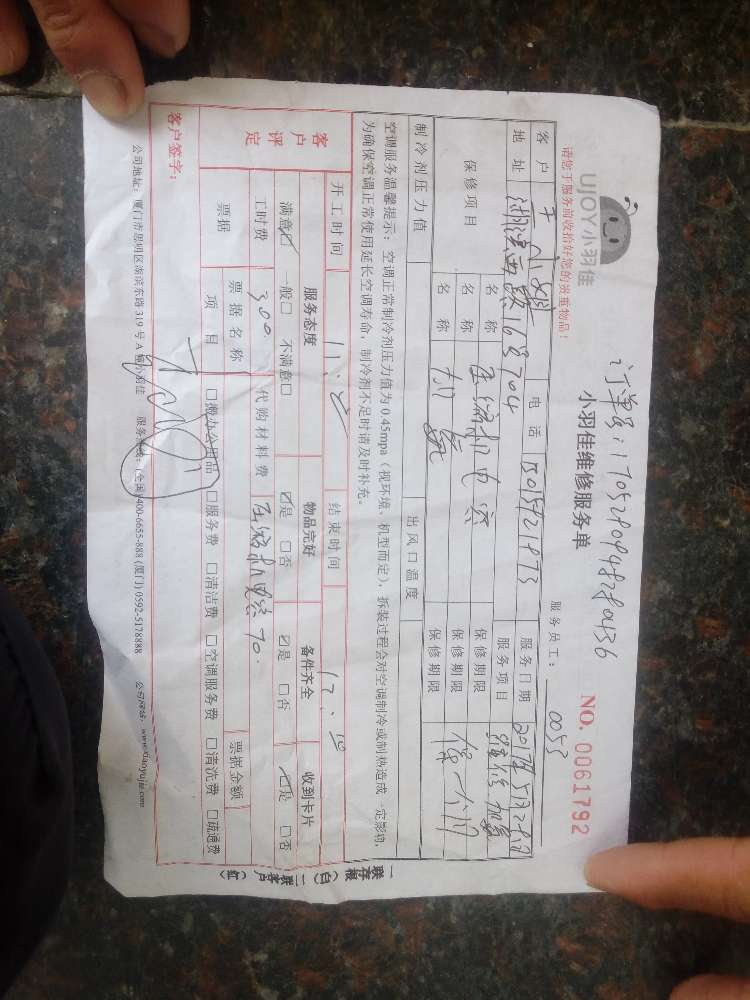 UJOY小羽佳
请您于服务前收拾好您的贵重物品!
订单号:1705280948280436
小羽佳维修服务单
NO. 0061792
服务员工: 0053
客户 电话 15015721873 服务日期 2017年5月28日
地址 湖滨西路16号704 服务项目 维修加氟
保修项目 名称 压缩机电容 保修期限
名称 加氟 保修期限 保一个月
名称 保修期限
制冷剂压力值 出风口温度
空调服务温馨提示:空调正常制冷剂压力值为0.45mpa(视环境、机型而定),拆装过程会对空调制冷或制热造成一定影响,
为确保空调正常使用延长空调寿命,制冷剂不足时请及时补充。
开工时间 结束时间
客户评定 服务态度 物品完好 备件齐全 收到卡片
满意☑ 一般□ 不满意□ ☑是 □否 ☑是 □否 ☑是 □否
工时费 300. 代购材料费 压缩机电容70.
票据 票据名称 票据金额
项目 □搬办公用品 □服务费 □清洁费 □空调服务费 □清洗费 □疏通费
客户签字:
公司地址:厦门市思明区湖滨东路319号A 小羽佳 服务热线:(全国)400-6655-888 (厦门)0592-5178888 公司网站:www.xiaoyujia.com
一联存根(白) 二联客户(红)